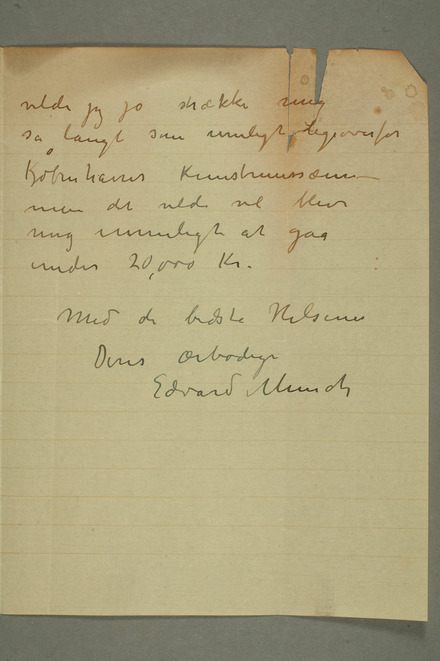 vilde jeg jo strække mig
så langt som muligt ligeoverfor
Kjøbenhavns Kunstmuseum
men det vilde vel blive
mig umuligt at gaa
under 20,000 Kr.
Med de bedste Hilsener
Deres ærbødige
Edvard Munch